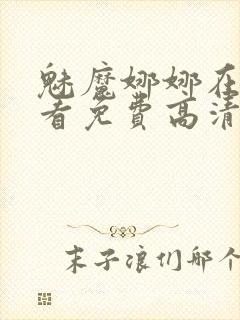 魅魔娜娜在
看免费高清
末子浪们那个